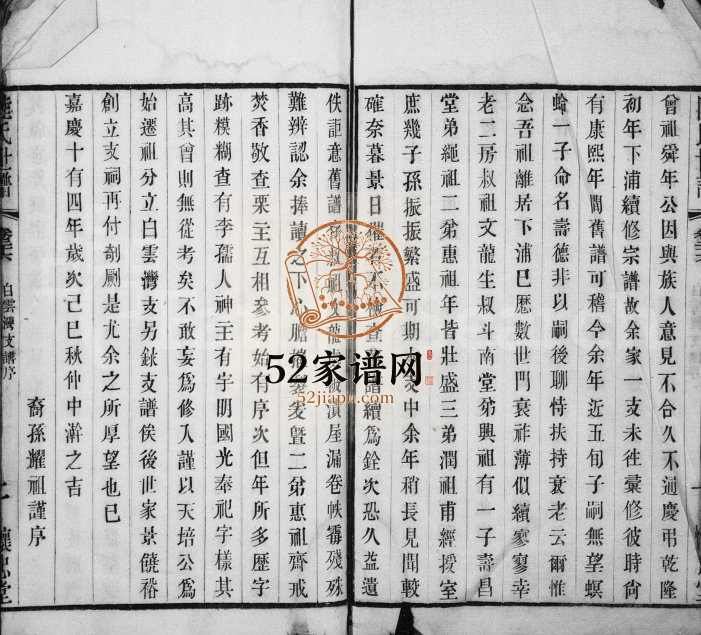 曾祖舜年公因與族人意見不合久不通慶弔乾隆
初年下浦續修宗譜故余家一支未往彙修彼時尚
有康熙年間舊譜可稽今余年近五旬子嗣無望螟
蛉一子命名壽德非以嗣後聊恃扶持衰老云爾惟
念吾祖離居下浦巳歷數世門衰祚薄似續寥寥幸
老二房叔祖文龍生叔斗南堂弟興祖有一子壽昌
堂弟繩祖二弟惠祖年皆壯盛三弟潤祖甫經授室
庶幾子孫振振繁盛可期 中余年稍長見聞較
確奈暮景日 查 譜續爲銓次恐久益遺
佚詎意舊譜 叔祖文龍 被漬屋漏卷帙霉殘殊
難辨認余捧讀之下心膽 爰曁二弟惠祖齊戒
焚香敬查栗主互相參考始有序次但年所多歷字
跡模糊查有李孺人神主有字明國光奉祀字樣其
高其曾則無從考矣不敢妄爲修入謹以天培公爲
始遷祖分立白雲灣支另錄支譜俟後世家景饒裕
創立支祠再付剞劂是尤余之所厚望也巳
嘉慶十有四年歲次己巳秋仲中澣之吉
裔孫耀祖謹序
氏世譜
白雲灣支譜序
52家谱网
52jiapu.com